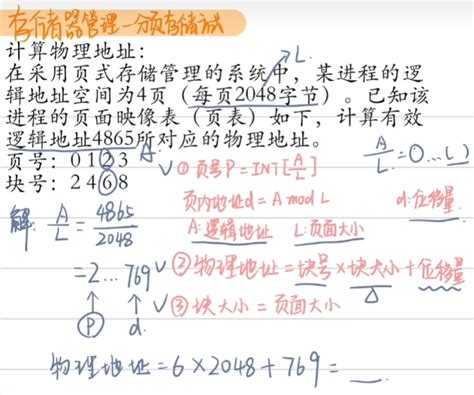 存储器管理—分页存储方式
计算物理地址：
在采用页式存储管理的系统中，某进程的逻
辑地址空间为4页（每页2048字节）。已知该
进程的页面映像表（页表）如下，计算有效
逻辑地址4865所对应的物理地址。
页号：0 1 2 3
块号：2 4 6 8
L
A
A/L=0...(L)
√①页号P=INT[A/L]
页内地址d=A mod L
d:位移量
A:逻辑地址 L:页面大小
解: A/L = 4865/2048
=2...769
P d
√②物理地址=块号×块大小+位移量
√③块大小=页面大小
物理地址=6×2048+769=